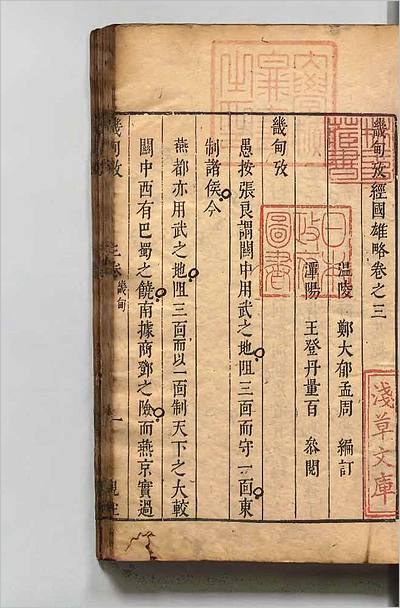 畿甸攷經國雄略卷之三
溫陵 鄭大郁孟周 編訂
潭陽 王登丹量百 叅閱
畿甸攷
愚按張良謂關中用武之地阻三面而守一面東
制諸侯今
燕都亦用武之地阻三面而以一面制天下之大較
關中西有巴蜀之饒南據商鄧之險而燕京實過
畿甸攷
畿甸
一
日本
政府
圖書
淺草文庫